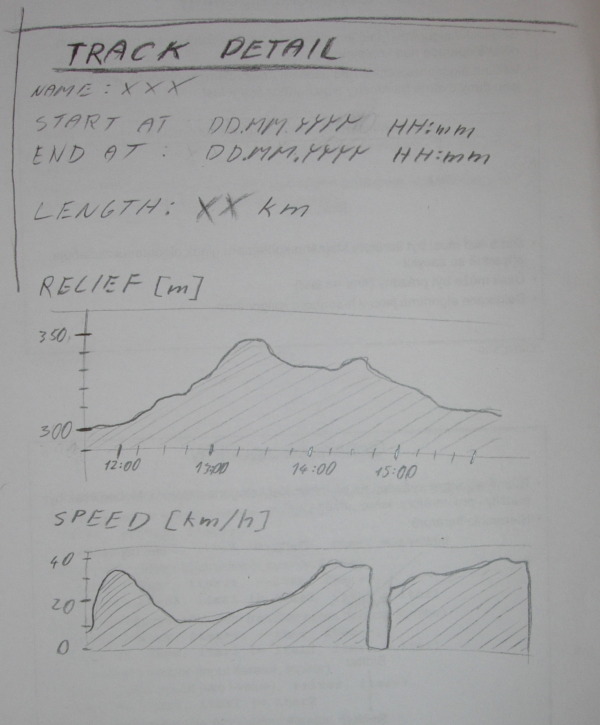 TRACK DETAIL
NAME: XXX
START AT DD.MM.YYYY HH:mm
END AT: DD.MM.YYYY HH:mm
LENGTH: XX km
RELIEF [m]
350
300
12:00 13:00 14:00 15:00
SPEED [km/h]
40
20
0